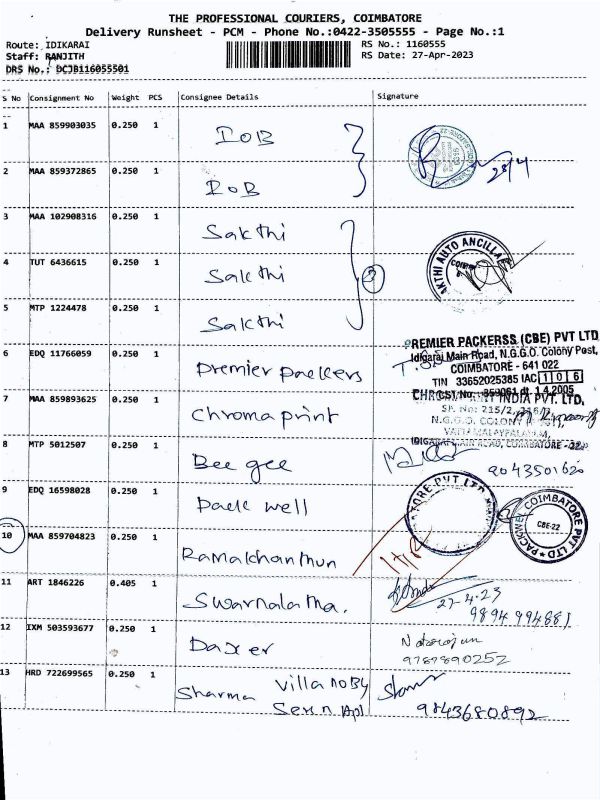 THE PROFESSIONAL COURIERS, COIMBATORE
Delivery Runsheet - PCM - Phone No.:0422-3505555 - Page No.:1
Route: IDIKARAI RS No.: 1160555
Staff: RANJITH RS Date: 27-Apr-2023
DRS No.: DCJB116055501
S No Consignment No Weight PCS Consignee Details Signature
1 MAA 859903035 0.250 1 IOB
2 MAA 859372865 0.250 1 IOB
3 MAA 102908316 0.250 1 Sakthi
4 TUT 6436615 0.250 1 Sakthi 3
AKTHI AUTO ANCILLA
5 MTP 1224478 0.250 1 Sakthi
PREMIER PACKERSS (CBE) PVT LTD
Idigarai Main Road, N.G.G.O. Colony Post,
COIMBATORE - 641 022
TIN 33652025385 IAC 1 0 6
CST No. 859061 dt. 1.4.2005
6 EDQ 11766059 0.250 1 Premier packers
7 MAA 859893625 0.250 1 Chroma print
INDIA PVT. LTD,
SF. No: 215/2,
N.G.G.O. COLONY
VATTAMALAYPALAYAM,
IDIGARAI MAIN ROAD, COIMBATORE -22
8 MTP 5012507 0.250 1 Bee gee
9043501620
9 EDQ 16598028 0.250 1 Pack well
PACKWELL COIMBATORE PVT LTD
CBE-22
10 MAA 859704823 0.250 1 Ramakhanthun
11 ART 1846226 0.405 1 Swarnalatha.
27-4-23
9894 994881
12 IXM 503593677 0.250 1 Daxer
Natarajan
9787890252
13 HRD 722699565 0.250 1 Sharma Villa noby
9843680892